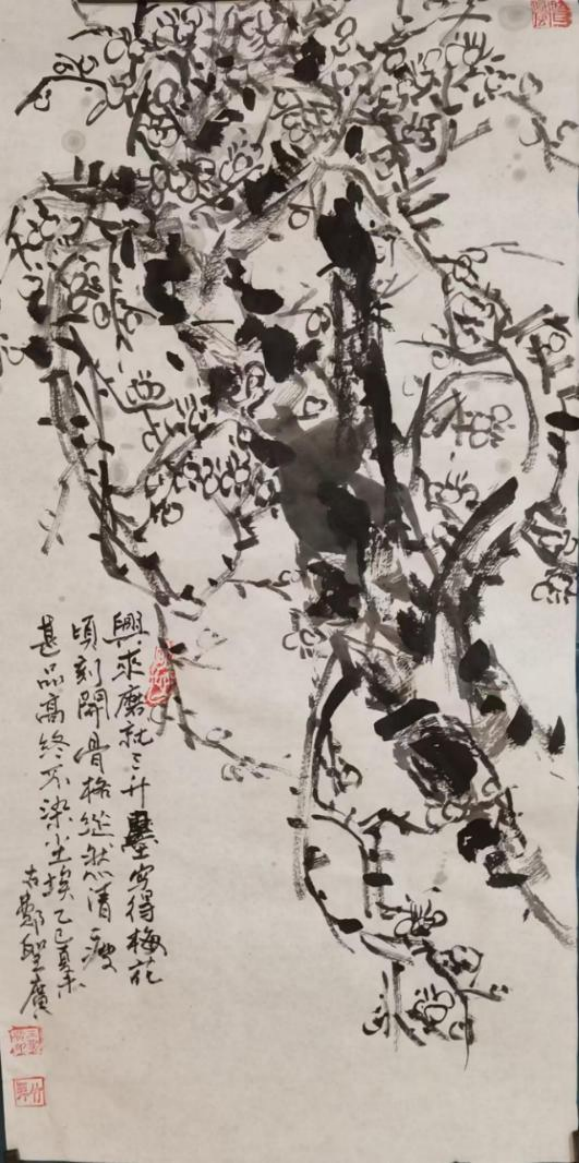 興來磨就三升墨寫得梅花
頃刻開骨格縱然清瘦
甚品高終不染塵埃乙巳夏末
古鄭聖廣